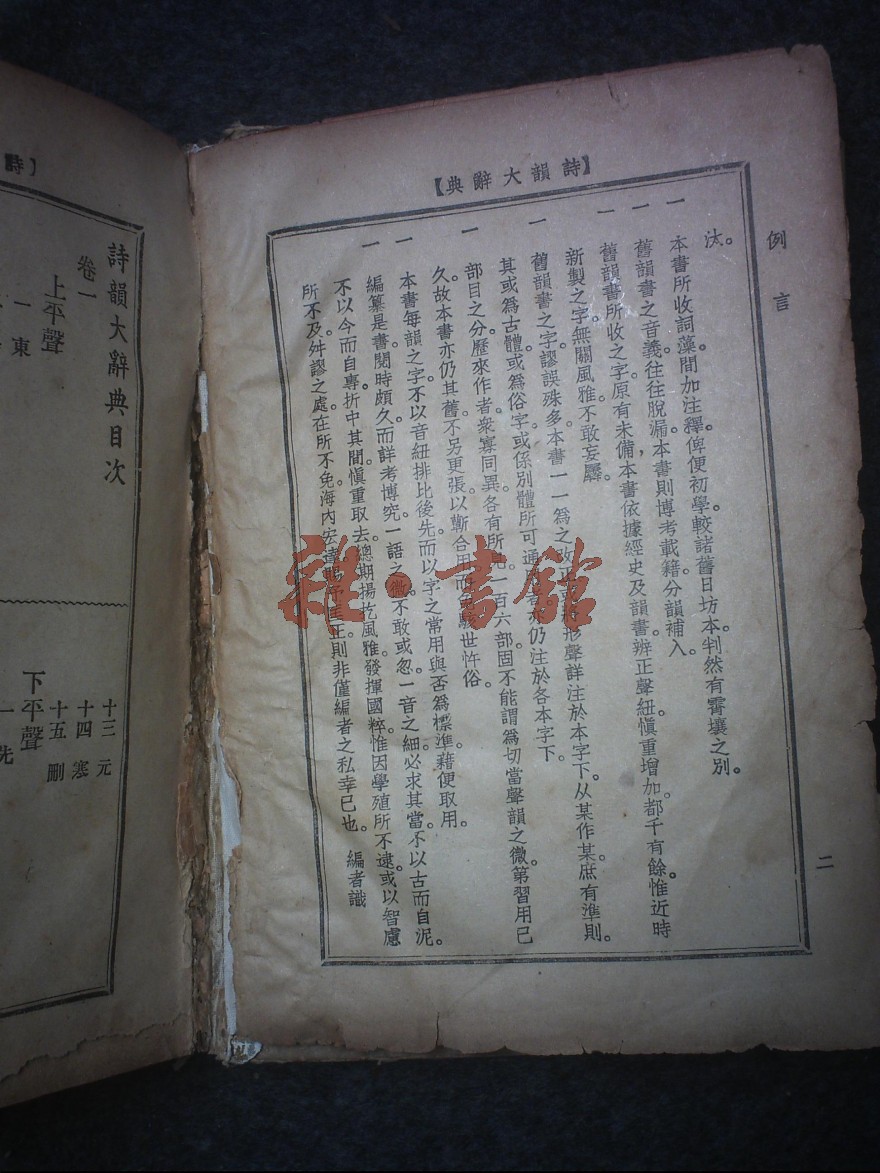 【詩韻大辭典】
例言
二
汰。
一 本書所收詞藻間加注釋俾便初學較諸舊日坊本判然有霄壤之別。
一 舊韻書之音義往往脫漏本書則博考載籍分韻補入。
一 舊韻書所收之字原有未備本書依據經史及韻書辨正聲紐愼重增加都千有餘惟近時
新製之字無關風雅不敢妄羼。
一 舊韻書之字謬誤殊多本書一一爲之改正形聲詳注於本字下。从某作某庶有準則。
其或爲古體或爲俗字或係別體所可通仍注於各本字下。
一 部目之分歷來作者衆寡同異各有所見一百六部固不能謂爲切當聲韻之微第習用已
久。故本書亦仍其舊不另更張以蘄合用而免駭世忤俗。
一 本書每韻之字不以音紐排比後先而以字之常用與否爲標準藉便取用。
一 編纂是書閱時頗久而詳考博究一語之微不敢或忽一音之細必求其當不以古而自泥。
不以今而自專折中其間愼重取去總期揚扢風雅發揮國粹惟因學殖所不逮或以智慮
所不及舛謬之處在所不免海內宏達正則非僅編者之私幸已也。 編者識
雜·書館
詩】
詩韻大辭典目次
卷一
上平聲
一 東
十三 元
十四 寒
十五 刪
下平聲
一 先